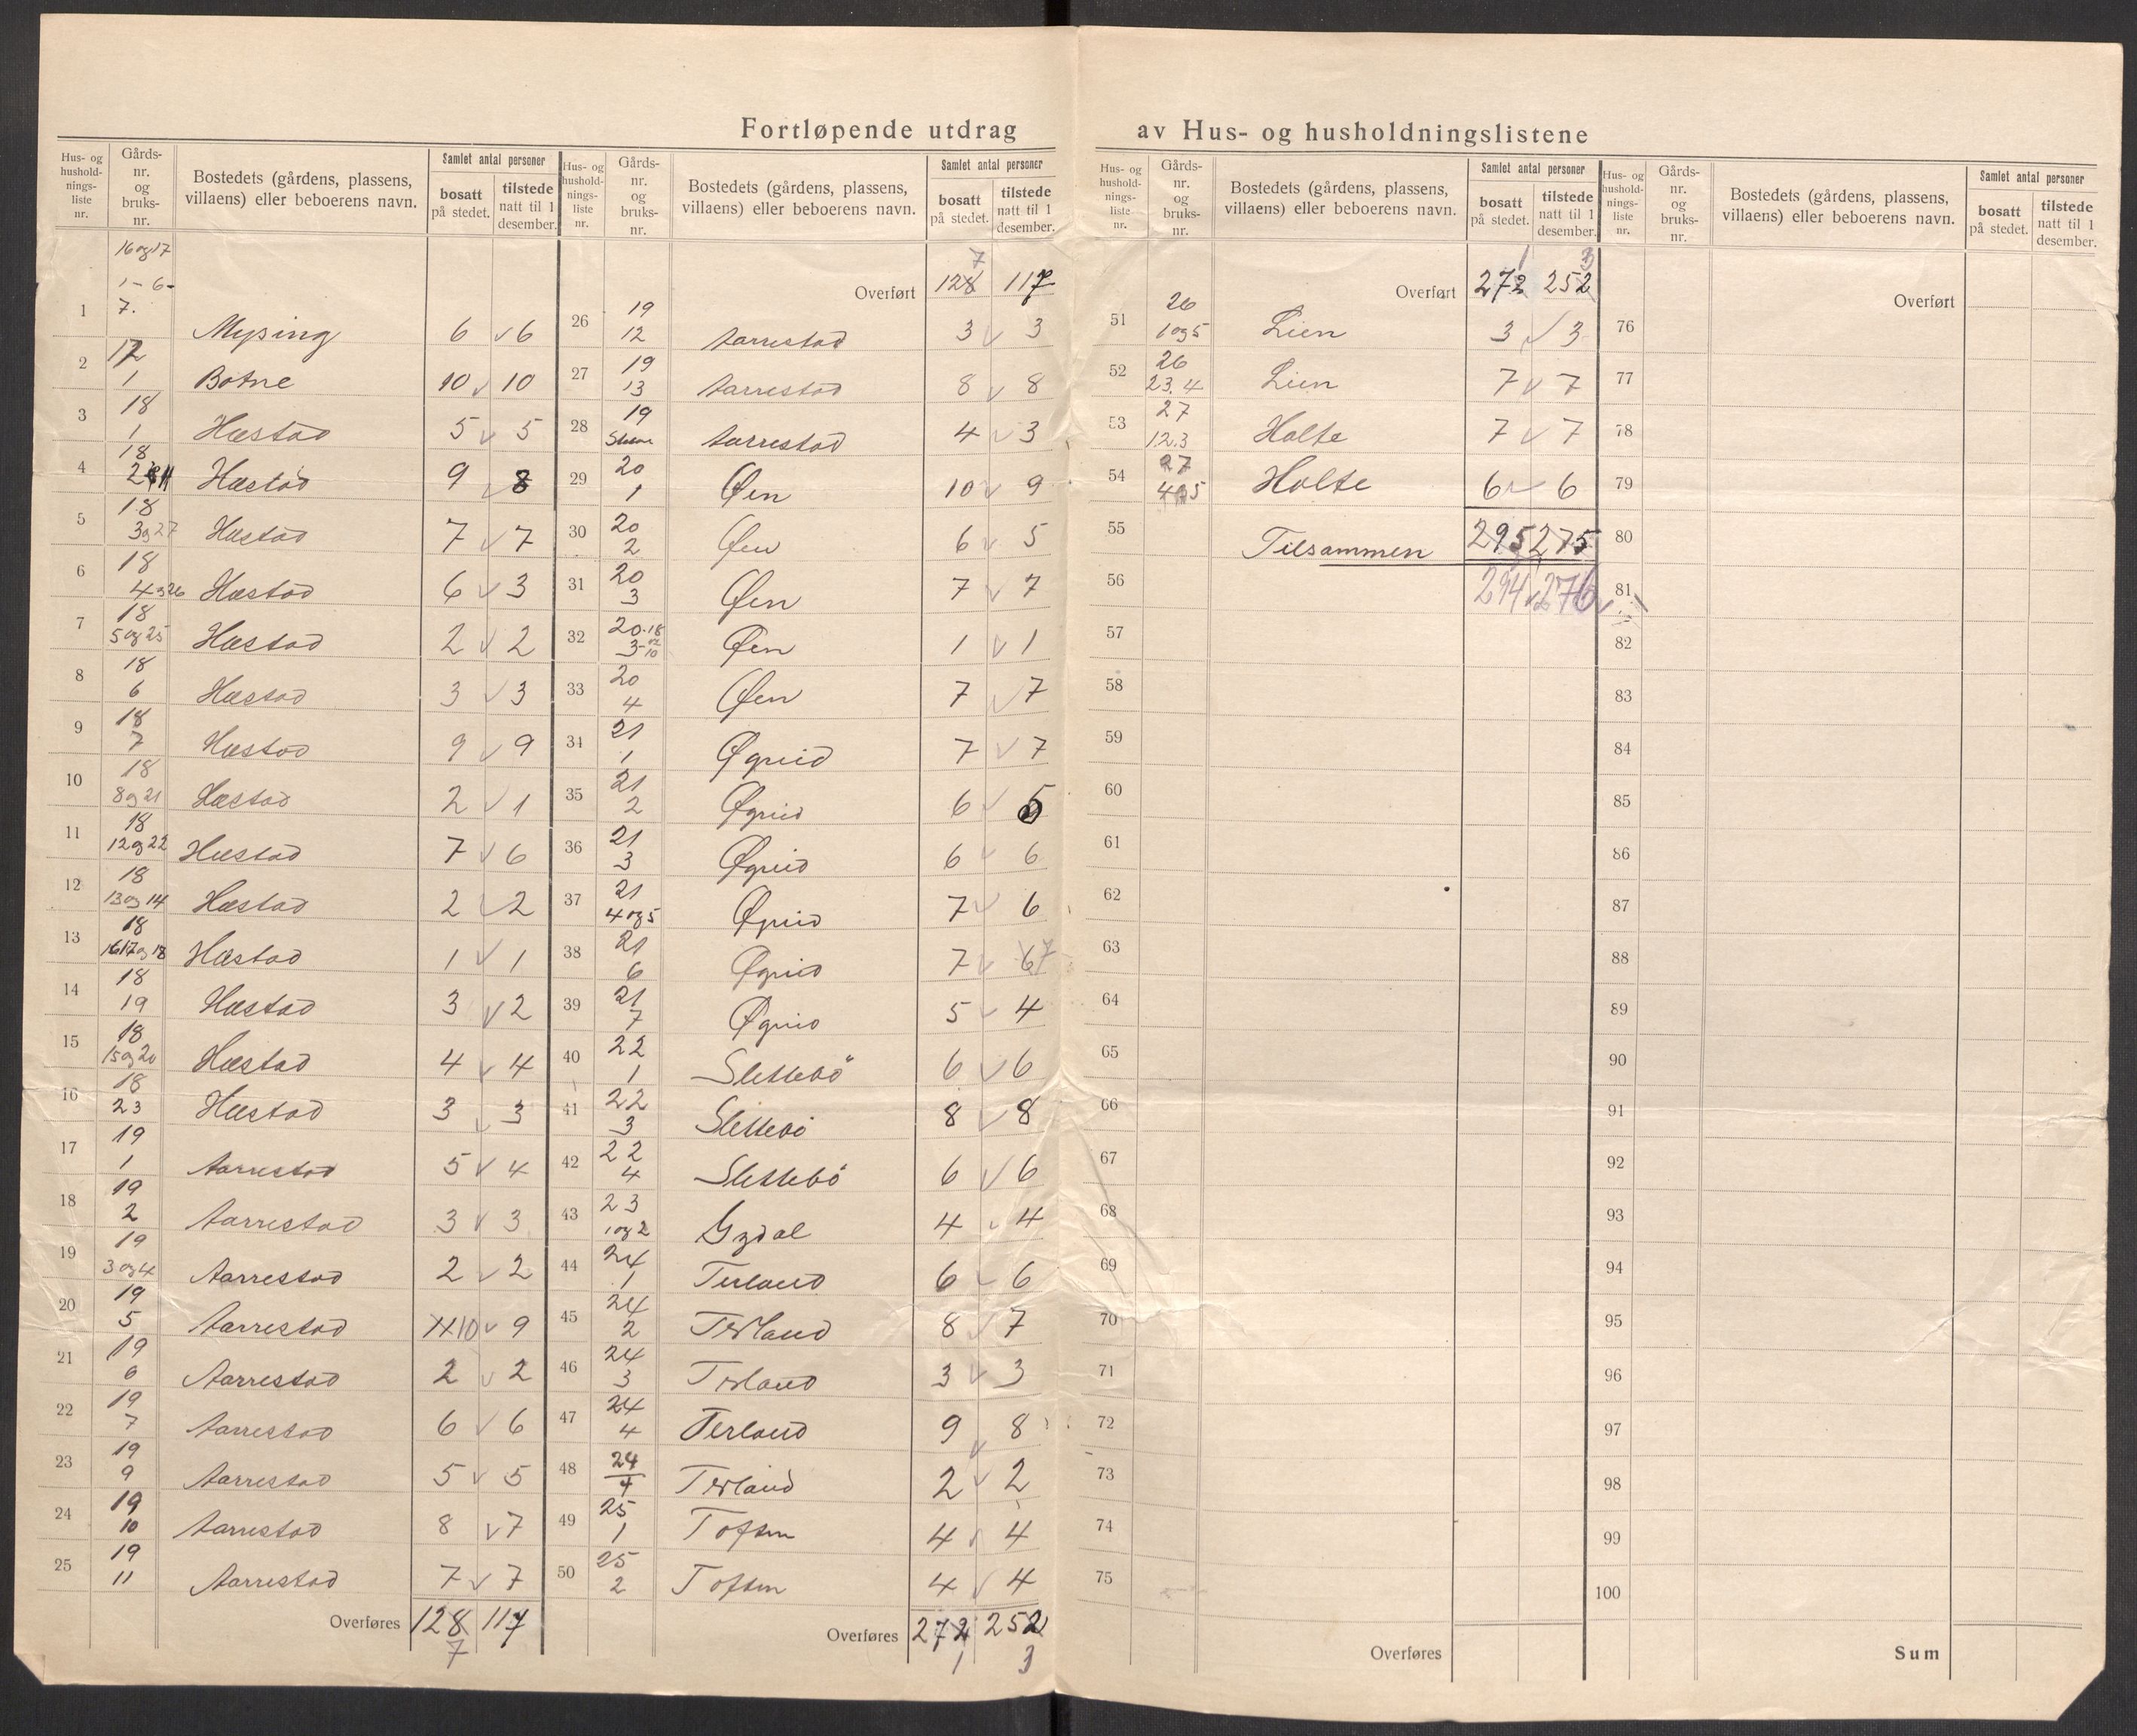 Fortløpende utdrag av Hus- og husholdningslistene
Hus- og husholdnings-liste nr. | Gårds-nr. og bruks-nr. | Bostedets (gårdens, plassens, villaens) eller beboerens navn. | Samlet antal personer | bosatt på stedet. | tilstede natt til 1 desember.
16og17
1-6-
1 | 7. | Mysing | 6 v 6
2 | 17 1 | Botne | 10 v 10
3 | 18 1 | Hæstad | 5 v 5
4 | 18 | Hæstad | 9 v 8
5 | 18 3og27 | Hæstad | 7 v 7
6 | 18 4og26 | Hæstad | 6 v 3
7 | 18 5og25 | Hæstad | 2 v 2
8 | 18 6 | Hæstad | 3 v 3
9 | 18 7 | Hæstad | 9 v 9
10 | 18 8og21 | Hæstad | 2 v 1
11 | 18 12og22 | Hæstad | 7 v 6
12 | 18 13og14 | Hæstad | 2 v 2
13 | 18 16 17og18 | Hæstad | 1 v 1
14 | 18 19 | Hæstad | 3 v 2
15 | 18 15og20 | Hæstad | 4 v 4
16 | 18 23 | Hæstad | 3 v 3
17 | 19 1 | Aarrestad | 5 v 4
18 | 19 2 | Aarrestad | 3 v 3
19 | 19 3og4 | Aarrestad | 2 v 2
20 | 19 5 | Aarrestad | 10 v 9
21 | 19 6 | Aarrestad | 2 v 2
22 | 19 7 | Aarrestad | 6 v 6
23 | 19 9 | Aarrestad | 5 v 5
24 | 19 10 | Aarrestad | 8 v 7
25 | 19 11 | Aarrestad | 7 v 7
Overføres | 128 | 117
7
Hus- og husholdnings-liste nr. | Gårds-nr. og bruks-nr. | Bostedets (gårdens, plassens, villaens) eller beboerens navn. | Samlet antal personer | bosatt på stedet. | tilstede natt til 1 desember.
7
Overført | 128 | 117
26 | 19 12 | Aarrestad | 3 v 3
27 | 19 13 | Aarrestad | 8 v 8
28 | 19 | Aarrestad | 4 v 3
29 | 20 1 | Øen | 10 v 9
30 | 20 2 | Øen | 6 v 5
31 | 20 3 | Øen | 7 v 7
32 | 20-18 3-10 | Øen | 1 v 1
33 | 20 4 | Øen | 7 v 7
34 | 21 1 | Øgreid | 7 v 7
35 | 21 2 | Øgreid | 6 v 5
36 | 21 3 | Øgreid | 6 v 6
37 | 21 4og5 | Øgreid | 7 v 6
38 | 21 6 | Øgreid | 7 v 6 7
39 | 21 7 | Øgreid | 5 v 4
40 | 22 1 | Slettebö | 6 v 6
41 | 22 3 | Slettebö | 8 v 8
42 | 22 4 | Slettebö | 6 v 6
43 | 23 1og2 | Gydal | 4 v 4
44 | 24 1 | Terland | 6 v 6
45 | 24 2 | Terland | 8 v 7
46 | 24 3 | Terland | 3 v 3
47 | 24 4 | Terland | 9 v 8
48 | 24 4 | Terland | 2 v 2
49 | 25 1 | Toften | 4 v 4
50 | 25 2 | Toften | 4 v 4
Overføres | 272 | 252
1 | 3
Hus- og husholdnings-liste nr. | Gårds-nr. og bruks-nr. | Bostedets (gårdens, plassens, villaens) eller beboerens navn. | Samlet antal personer | bosatt på stedet. | tilstede natt til 1 desember.
1 | 3
Overført | 272 | 252
51 | 26 1og5 | Lien | 3 v 3
52 | 26 2 3. 4 | Lien | 7 v 7
53 | 27 1.2.3 | Holte | 7 v 7
54 | 27 4og5 | Holte | 6 v 6
55 | Tilsammen | 295 | 275
56 | 294 v 276 v
57
58
59
60
61
62
63
64
65
66
67
68
69
70
71
72
73
74
75
Overføres
Hus- og husholdnings-liste nr. | Gårds-nr. og bruks-nr. | Bostedets (gårdens, plassens, villaens) eller beboerens navn. | Samlet antal personer | bosatt på stedet. | tilstede natt til 1 desember.
Overført
76
77
78
79
80
81
82
83
84
85
86
87
88
89
90
91
92
93
94
95
96
97
98
99
100
Sum